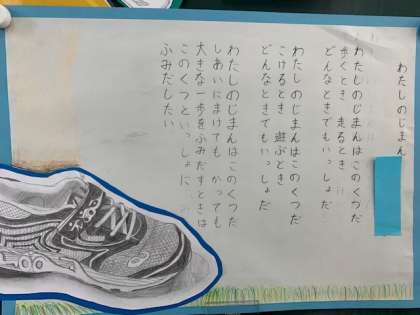 わたしのじまん
わたしのじまんはこのくつだ
歩くとき 走るとき
どんなときでもいっしょだ
わたしのじまんはこのくつだ
こけるとき 遊ぶとき
どんなときでもいっしょだ
わたしのじまんはこのくつだ
しあいにまけても かっても
大きな一歩をふみだすときは
このくつといっしょに
ふみだしたい